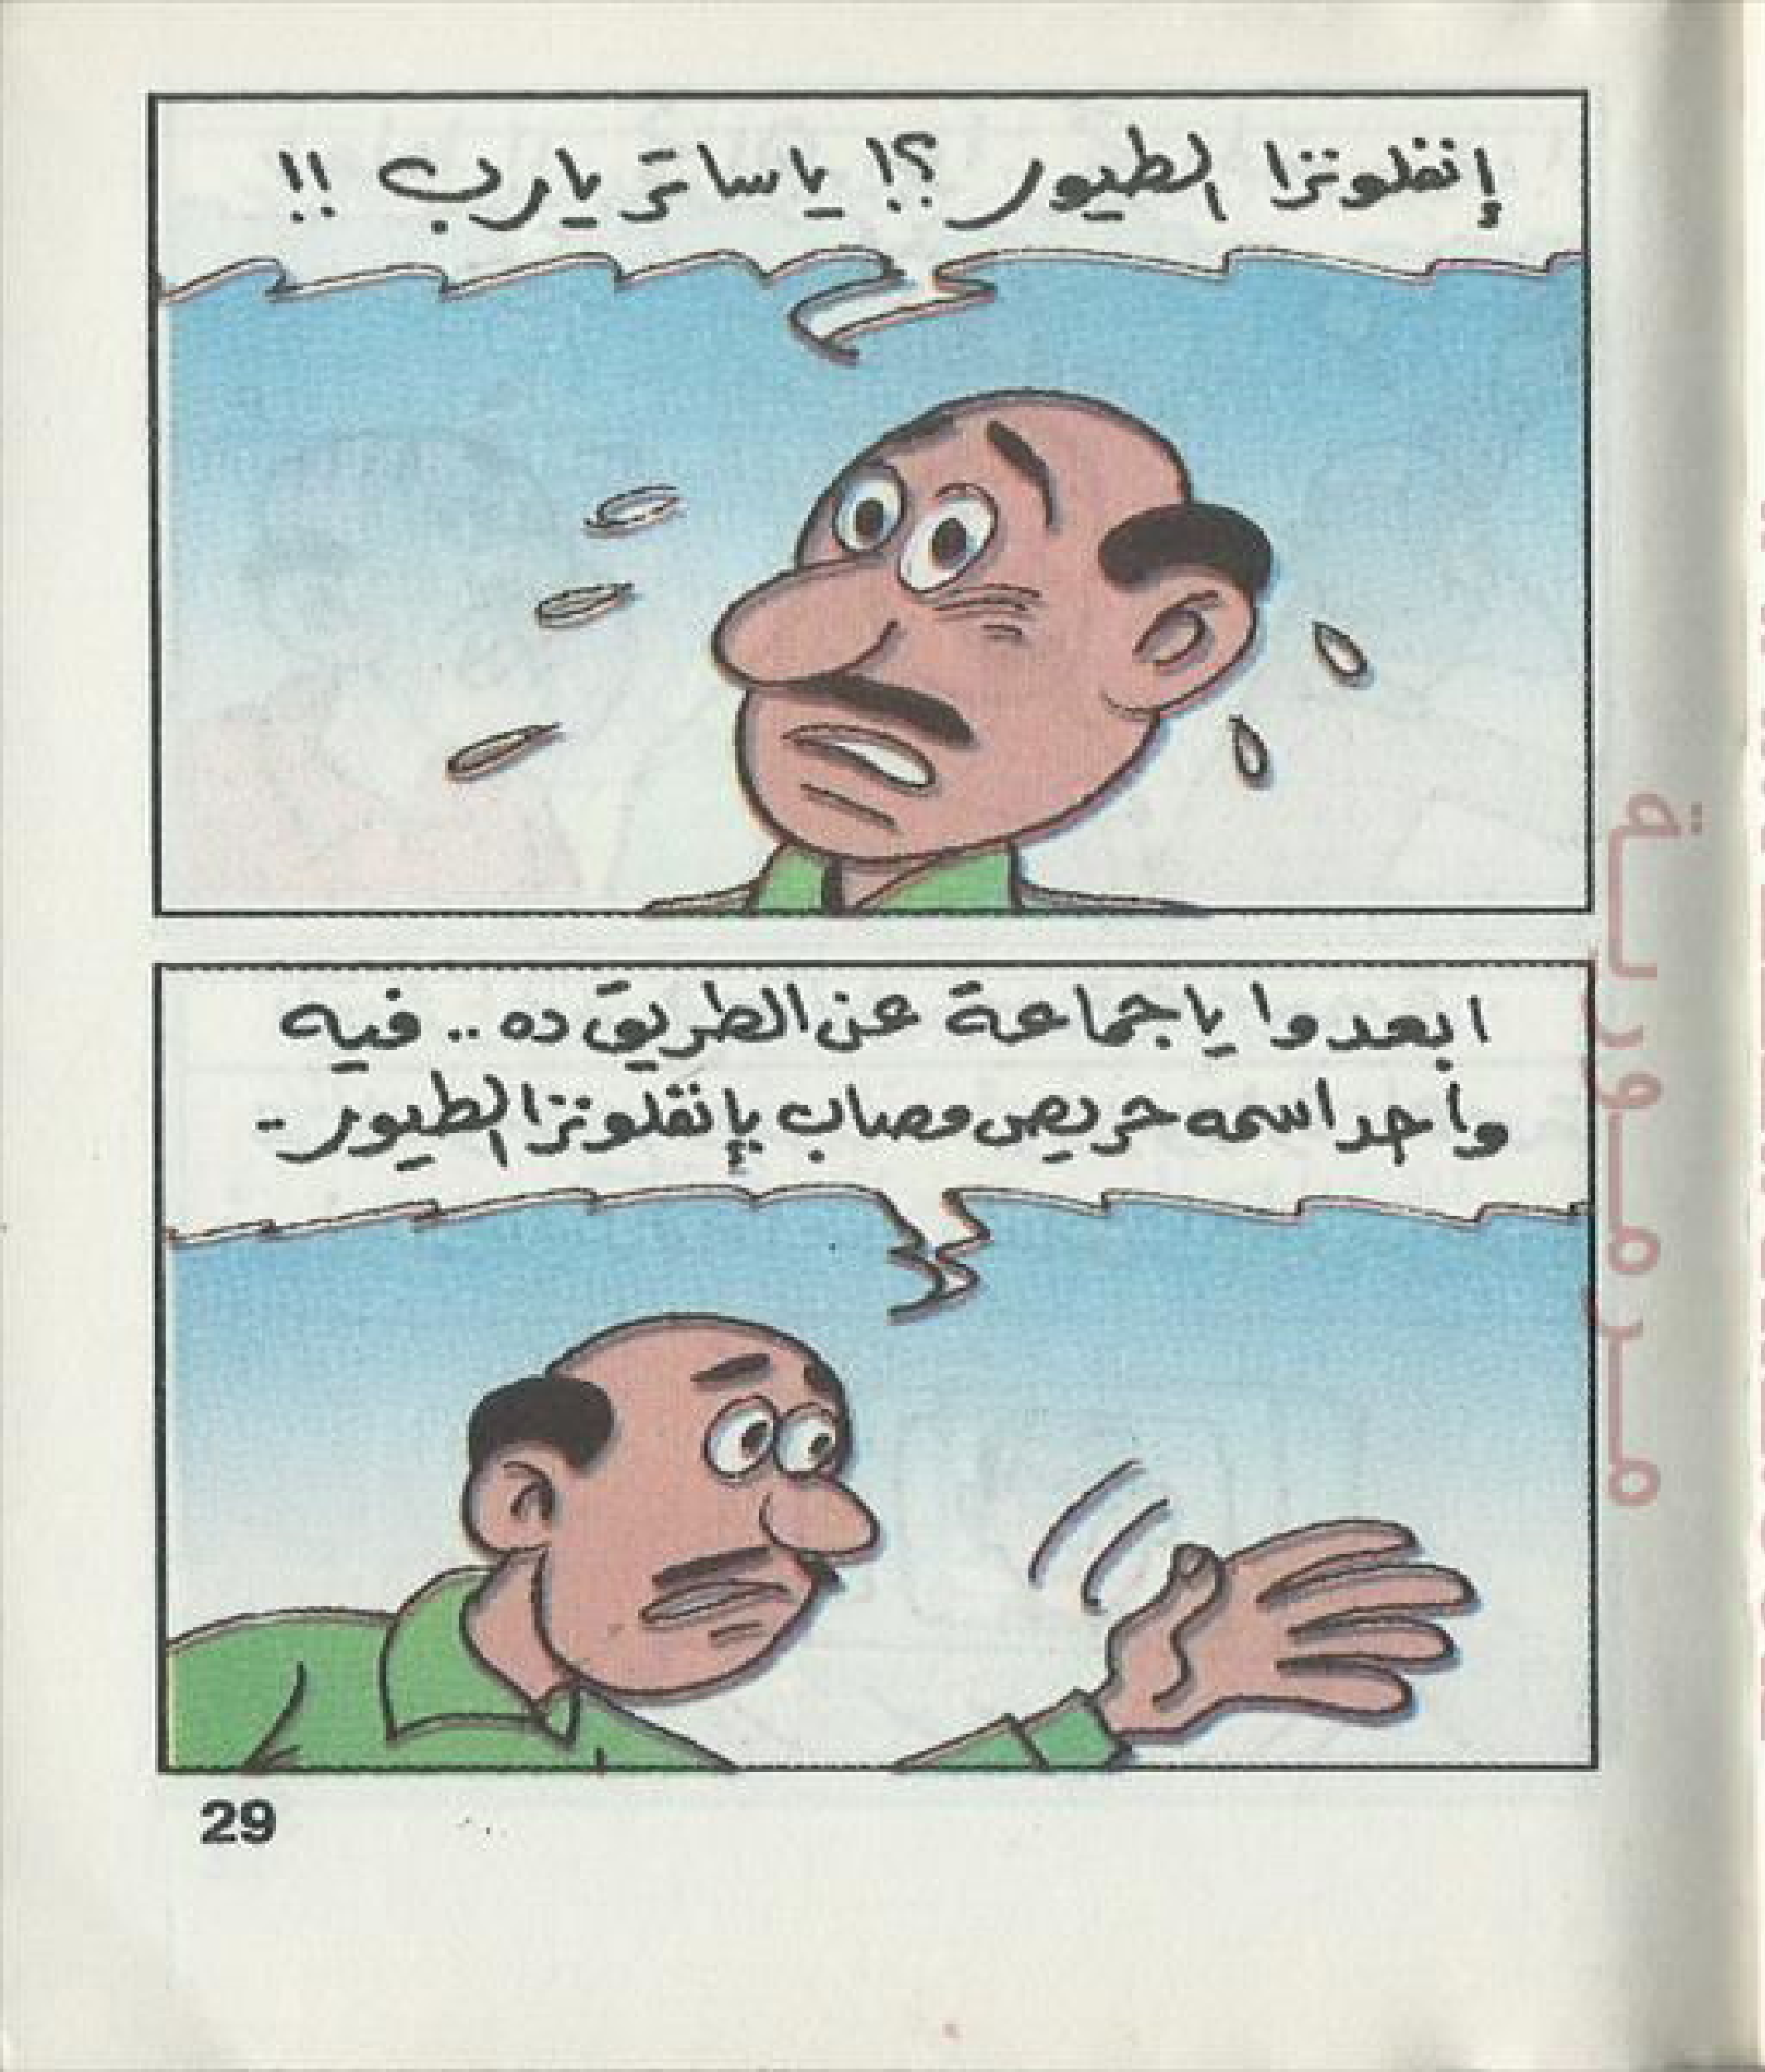 إنفلونزا الطيور ؟! يا ساتر يارب !!
ابعدوا يا جماعة عن الطريق ده .. فيه
واحد اسمه حريص مصاب بإنفلونزا الطيور ..
29
مرمورية